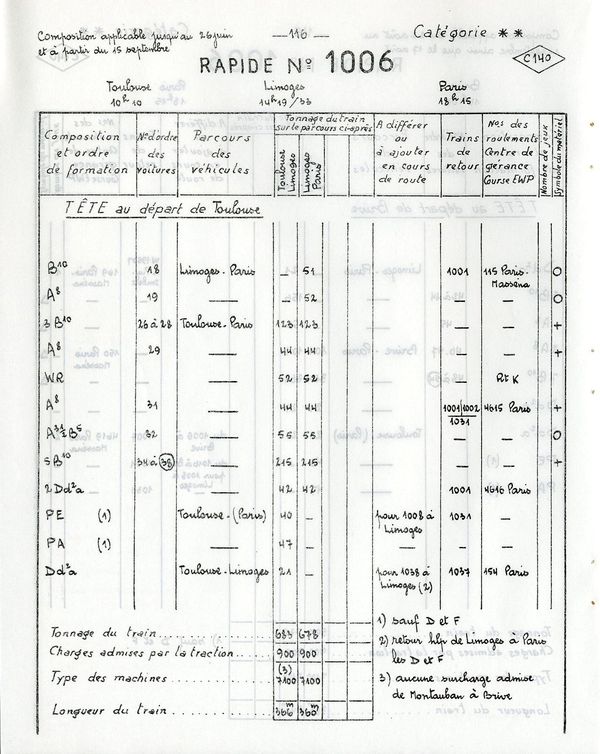 Composition applicable jusqu'au 26 juin
et à partir du 15 septembre
—116—
Catégorie **
RAPIDE No 1006
C140
Toulouse Limoges Paris
10h10 14h19/33 18h15
Composition et ordre de formation
Nos d'ordre des voitures
Parcours des véhicules
Tonnage du train sur le parcours ci-après
Toulouse Limoges
Limoges Paris
A différer ou à ajouter en cours de route
Trains de retour
Nos des roulements Centre de gérance Course EWP
Nombre de jeux
Symbole du matériel
TÊTE au départ de Toulouse
B10 18 Limoges-Paris — 51 1001 115 Paris-Massena O
A8 19 — — 52 — — O
3 B10 26 à 28 Toulouse-Paris 123 123 — — +
A8 29 — 44 44 — — +
WR — 52 52 — Rt K
A8 31 — 44 44 1001/1002 1031 4615 Paris +
A3½B5 32 — 55 55 — — O
5B10 34 à 38 — 215 215 — — +
2Dd2a — 42 42 1001 4616 Paris
PE (1) Toulouse-(Paris) 40 — pour 1008 à Limoges 1031 —
PA (1) — 47 — — —
Dd2a Toulouse-Limoges 21 — pour 1038 à Limoges (2) 1037 154 Paris
Tonnage du train 683 678
Charges admises par la traction 900 900
(3)
Type des machines 7100 7100
Longueur du train 366m 360m
1) sauf D et F
2) retour hlp de Limoges à Paris
les D et F
3) aucune surcharge admise
de Montauban à Brive